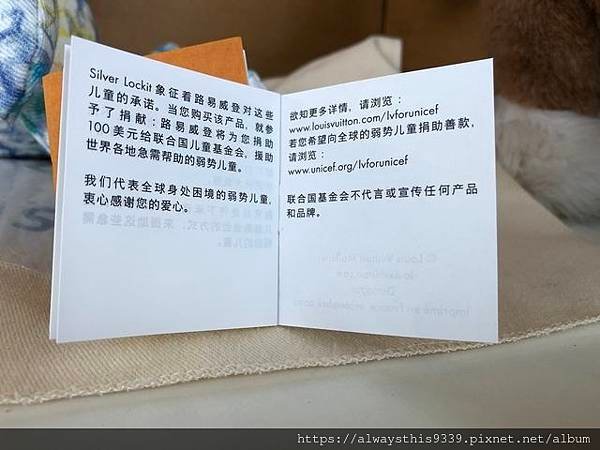 Silver Lockit 象征着路易威登对这些
儿童的承诺。当您购买该产品，就参
予了捐献：路易威登将为您捐助
100 美元给联合国儿童基金会，援助
世界各地急需帮助的弱势儿童。
我们代表全球身处困境的弱势儿童，
衷心感谢您的爱心。
欲知更多详情，请浏览：
www.louisvuitton.com/lvforunicef
若您希望向全球的弱势儿童捐助善款，
请浏览：
www.unicef.org/lvforunicef
联合国基金会不代言或宣传任何产品
和品牌。
https://alwaysthis9339.pixnet.net/album